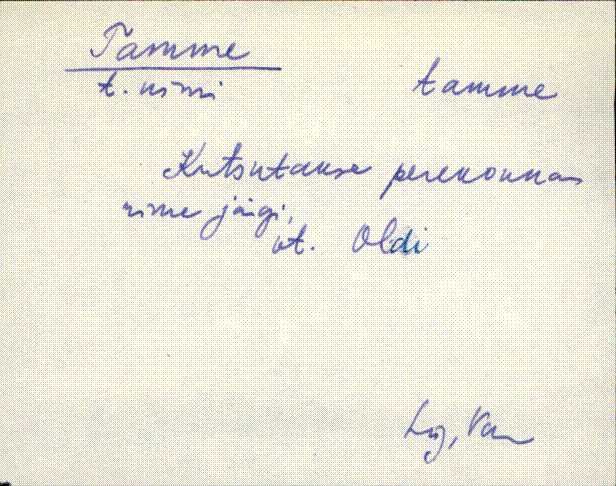 Tamme
t. nimi tamme
Kutsutakse perekonna
nime järgi,
vt. Oldi